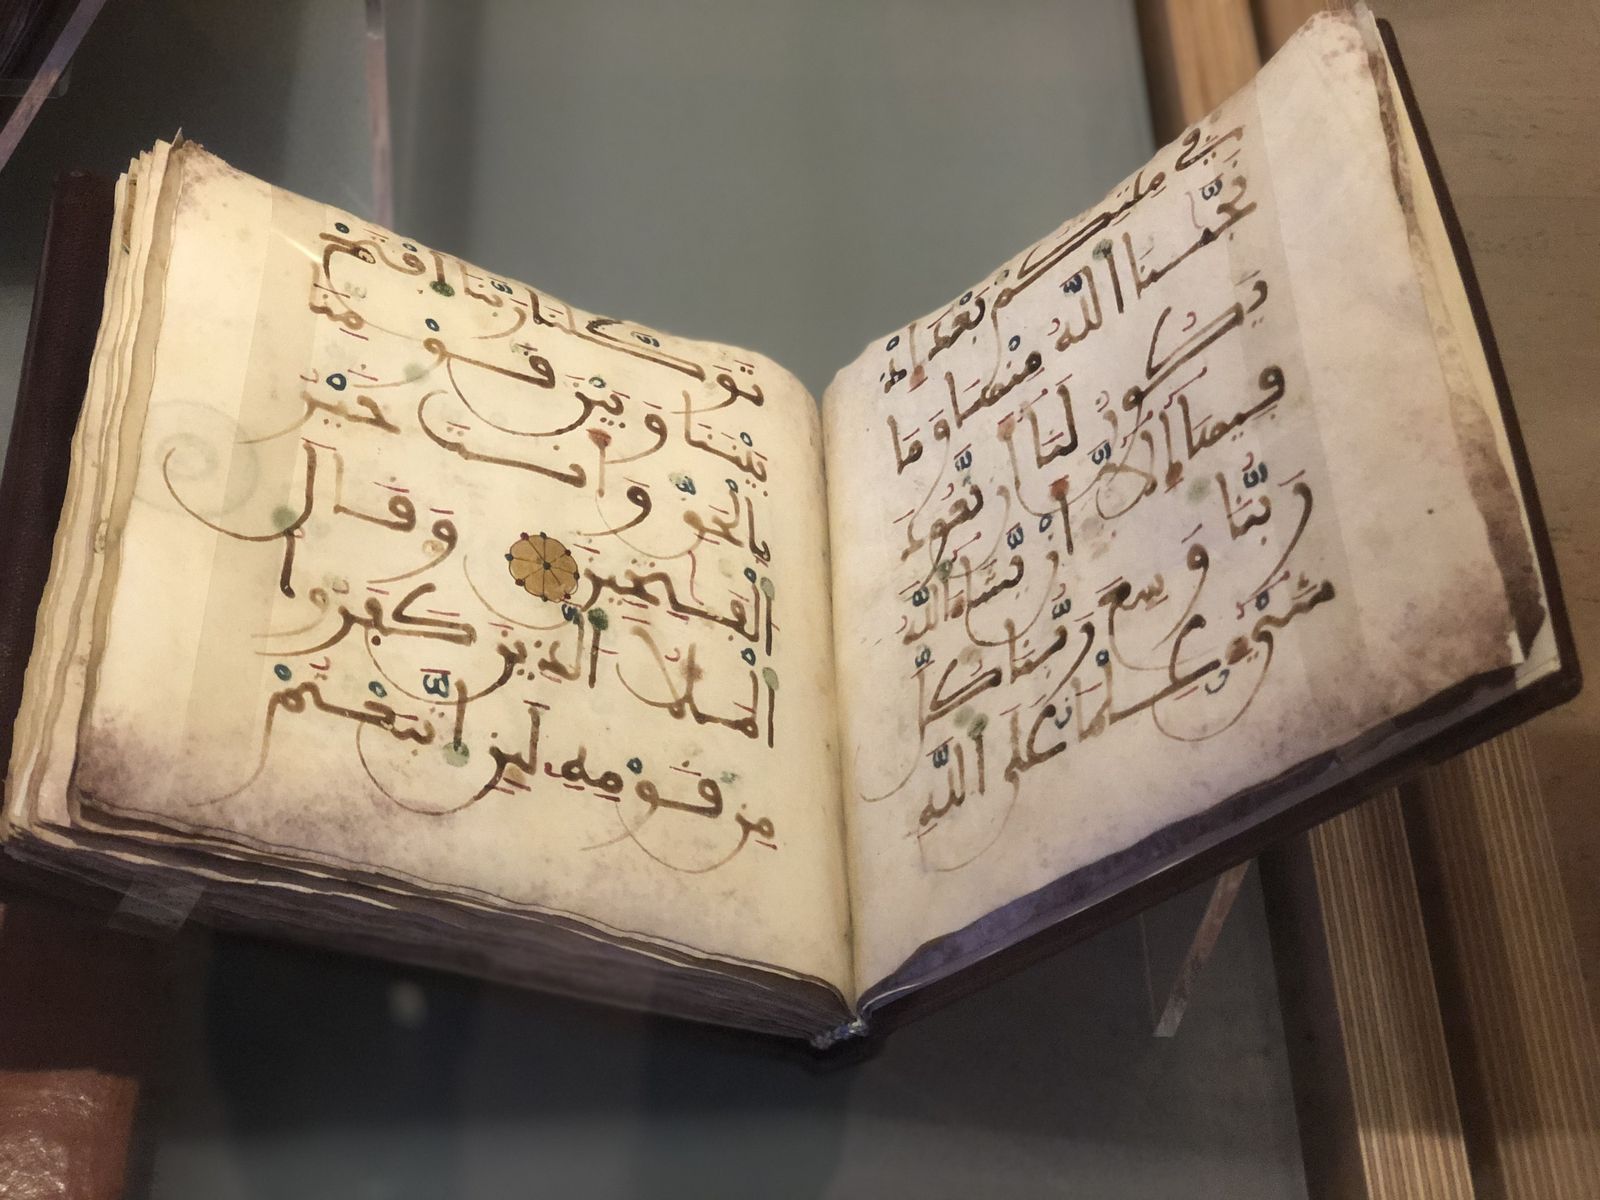 فِي مِلَّتِكُمْ بَعْدَ إِذْ
نَجَّيٰنَا اَللَّهُ مِنْهَا وَمَا
يَكُونُ لَنَا أَن نَّعُودَ
فِيهَا إِلَّا أَنْ يَّشَاءَ اَللَّهُ
رَبُّنَا وَسِعَ رَبُّنَا كُلَّ
شَيْءٍ عِلْمًا عَلَى اَللَّهِ
تَوَكَّلْنَا رَبَّنَا اَفْتَحْ
بَيْنَنَا وَبَيْنَ قَوْمِنَا
بِالْحَقِّ وَأَنتَ خَيْرُ
اَلْفَٰتِحِينَ وَقَالَ
اَلْمَلَأُ اَلَّذِينَ كَفَرُوا
مِن قَوْمِهِ لَئِنِ اِتَّبَعْتُمْ